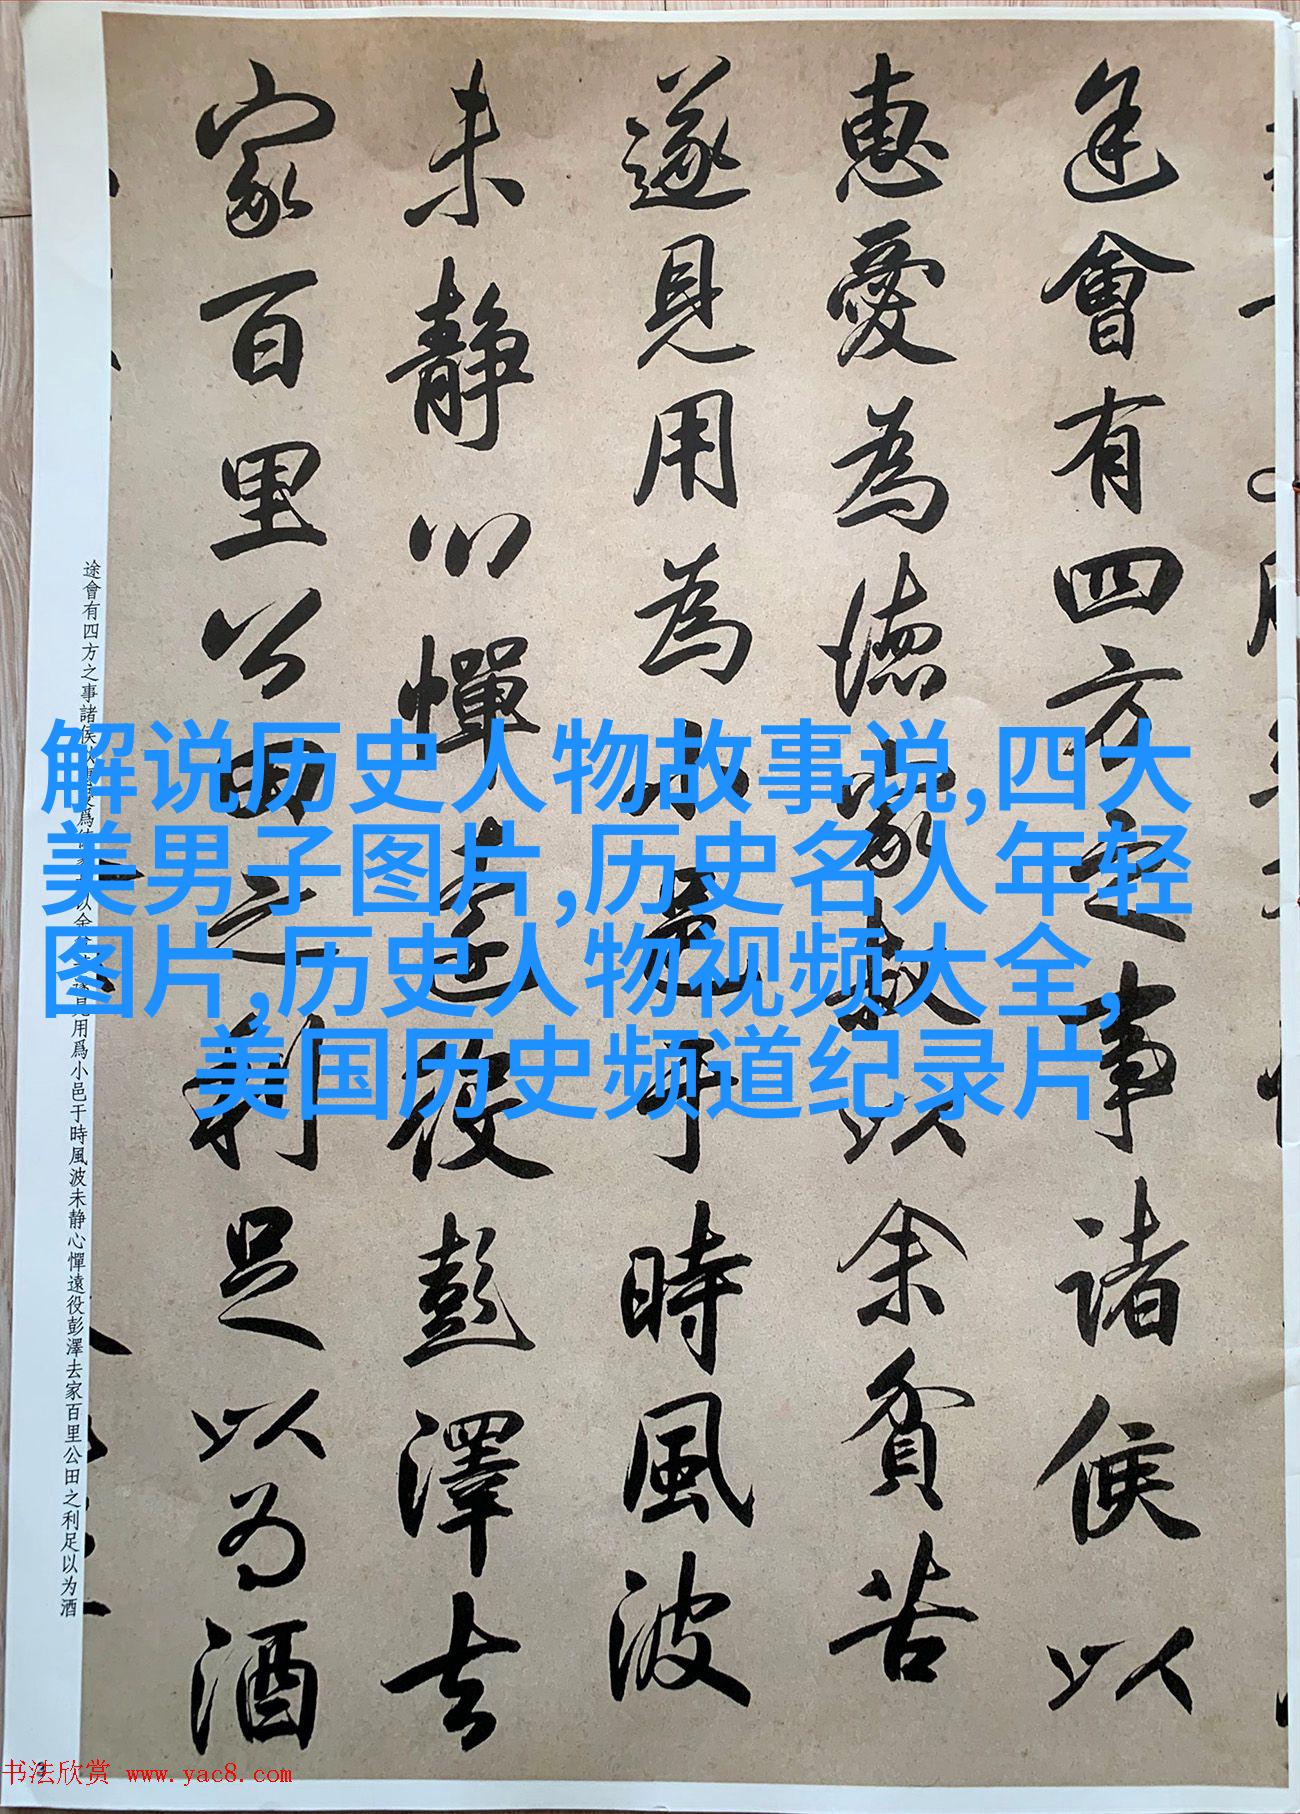 途會有四方之事諸侯以
惠愛為德家叔以余貧苦
遂見用為小邑于時風波
未静心憚遠役彭澤去
家百里公田之利足以為酒
途會有四方之事諸侯以惠愛爲德家叔以余貧苦遂見用爲小邑于時風波未静心憚遠役彭澤去家百里公田之利足以为酒
解说历史人物故事说,四大
美男子图片,历史名人年轻
图片,历史人物视频大全,
美国历史频道纪录片
书法欣赏 www.yac8.com